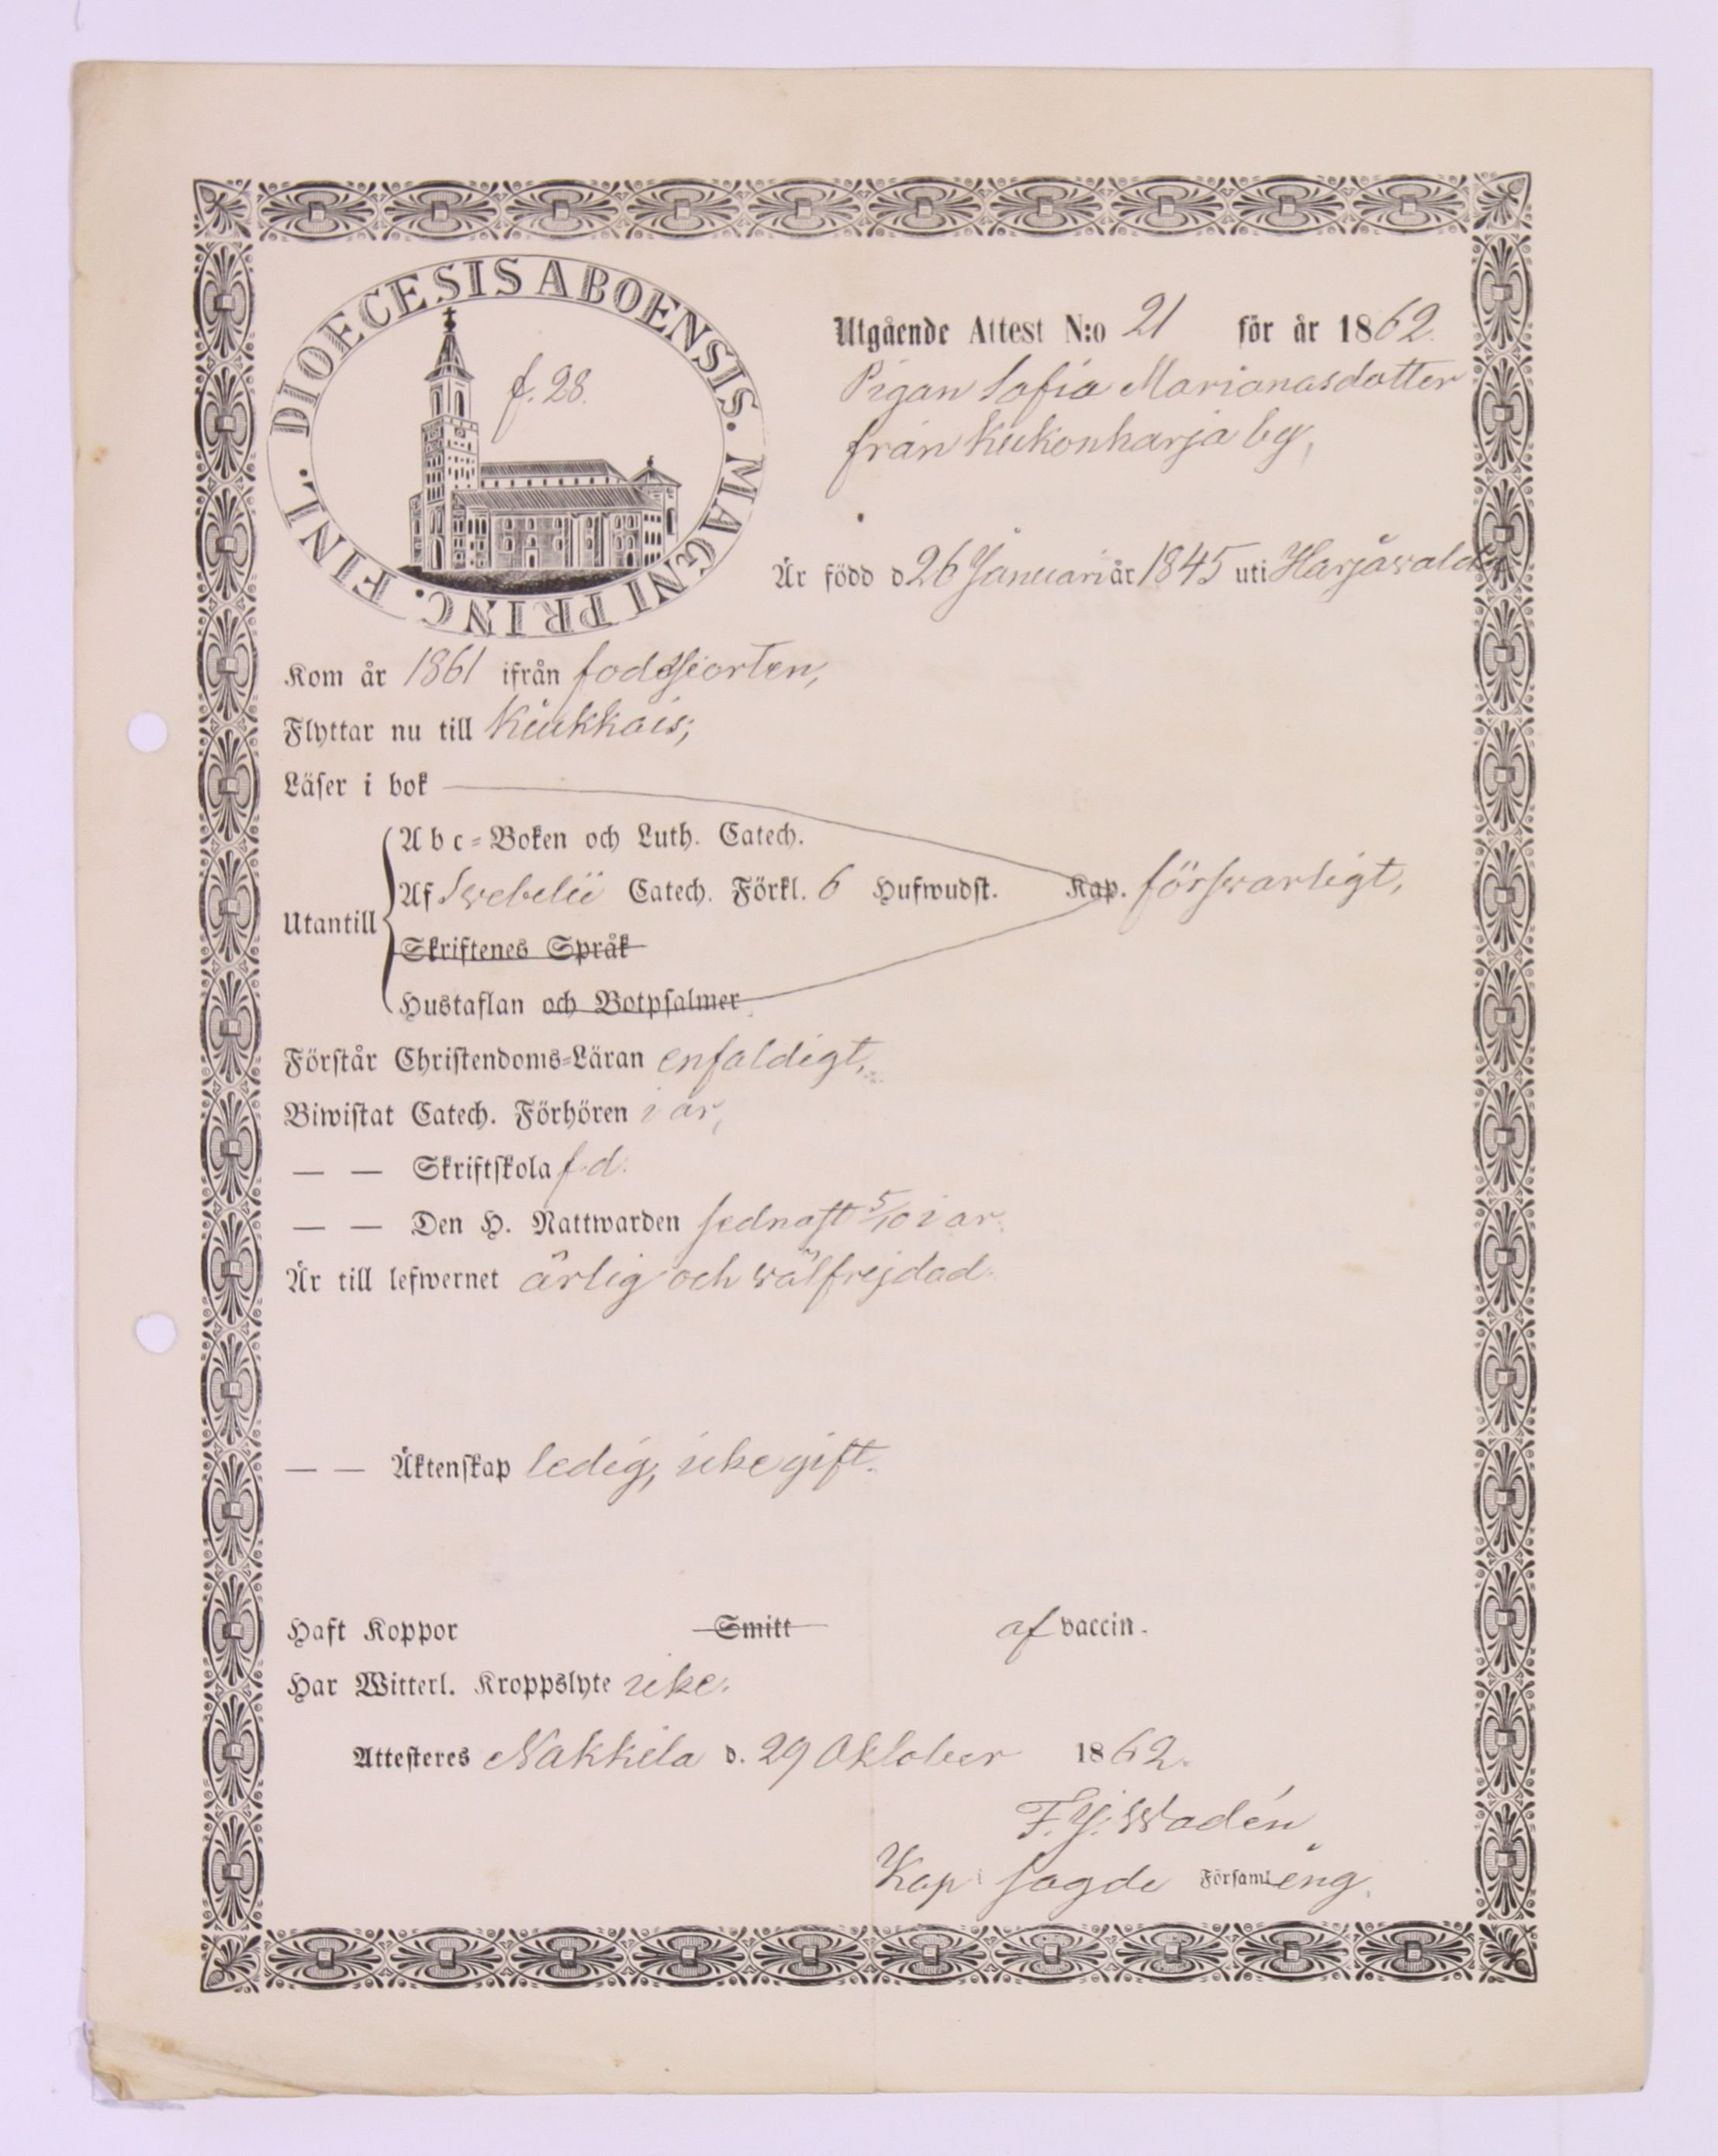 DIOECESIS ABOENSIS. MAGNI PRINC. FINL.
f. 28.
Utgående Attest N:o 21 för år 1862.
Pigan Sofia Marianasdotter
från Kukonharja by,
Är född d 26 Januari år 1845 uti Harjavalda
Kom år 1861 ifrån
Flyttar nu till Kiukkais;
Läser i bok
Utantill
Abc-Boken och Luth. Catech.
Af Svebelii Catech. Förkl. 6 Hufwudst. Kap. försvarligt,
Skriftenes Språk
Hustaflan och Botpsalmer
Förstår Christendoms-Läran enfaldigt,
Biwistat Catech. Förhören i år,
— — Skriftskola f.d.
— — Den H. Nattwarden sednast 5/10 i år.
Är till lefwernet ärlig och välfrejdad.
— — Äktenskap ledig, icke gift.
Haft Koppor Smitt af vaccin.
Har Witterl. Kroppslyte icke.
Attesteres Nakkila d. 29 Oktober 1862.
F. J. Wadén
Kap i sagde Församling.